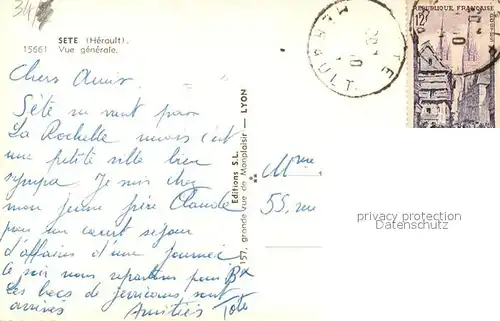 34
SETE (Hérault).
15661 Vue générale.
RÉPUBLIQUE FRANÇAISE
12f
HERAULT
Chers Amis
Sète ne vaut pas
La Rochelle mais c'est
une petite ville bien
sympa. Je suis chez
mon jeune frère Claude
pour un court séjour
d'affaires d'une journée
Ce soir nous repartons pour Bx
Les becs de jerricans sont
arrivés Amitiés Toto
Editions S.L.
157, grande rue de Monplaisir — LYON
Mme
55, rue
privacy protection
AK-Ansichtskarten.de